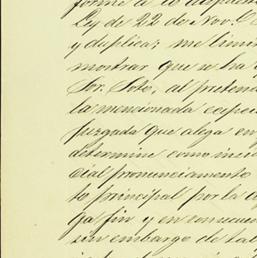 forme á lo dispuesto
Ley de 22 de Nov. 
y duplica; me limi
mostrar que se ha
Sor. Soto, al preten
la mencionada espec
juzgada que alega en
determine como inci
cial pronunciamiento
to principal por la
ga fin y en consecue
sin embargo de tal